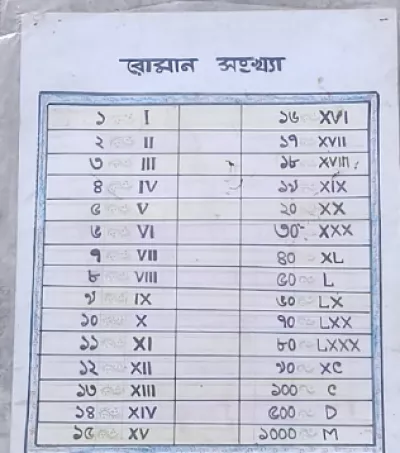 রোমান সংখ্যা
১ I ১৬ XVI
২ II ১৭ XVII
৩ III ১৮ XVIII
৪ IV ১৯ XIX
৫ V ২০ XX
৬ VI ৩০ XXX
৭ VII ৪০ XL
৮ VIII ৫০ L
৯ IX ৬০ LX
১০ X ৭০ LXX
১১ XI ৮০ LXXX
১২ XII ৯০ XC
১৩ XIII ১০০ C
১৪ XIV ৫০০ D
১৫ XV ১০০০ M